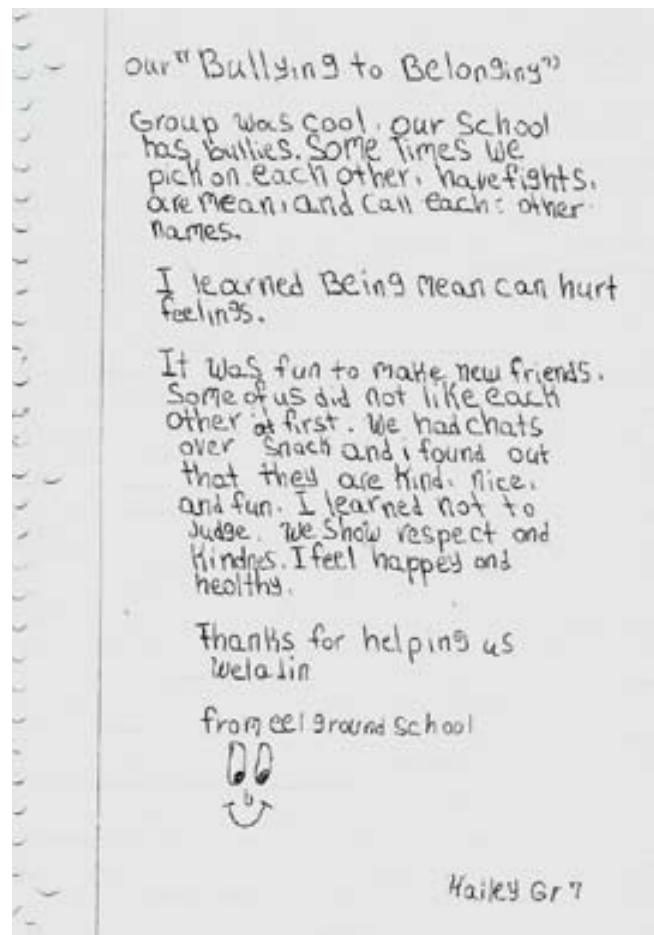 our "Bullying to Belonging"
Group was cool. our School
has bullies. Some Times We
pick on each other, have fights,
are mean, and call each other
names.
I learned Being mean can hurt
feelings.
It Was fun to make new friends.
Some of us did not like each
other at first. We had chats
over Snack and i found out
that they are kind, nice,
and fun. I learned not to
Judge. We Show respect and
Kindnes. I feel happey and
healthy.
Thanks for helping us
Weladin
from eel ground School
Hailey Gr 7